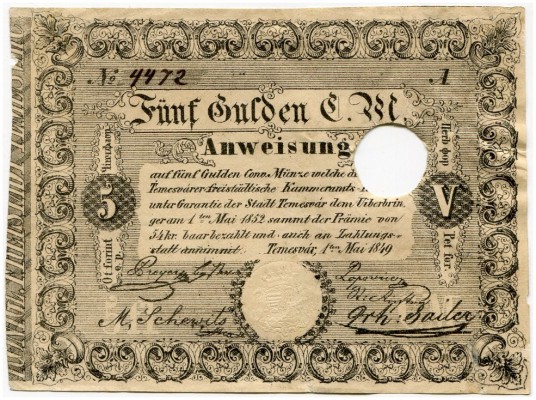 No 4472 A
Fünf Gulden C. M.
Anweisung
auf fünf Gulden Conv. Münze welche
Temesvárer freistädtische Kammeramts-
unter Garantie der Stadt Temesvár dem Uiberbrin
ger am 1ten Mai 1852 sammt der Prämie von
54 kr. baar bezahlt und auch an Zahlungs-
statt annimmt. Temesvár, 1ten Mai 1849
5
V
Öt forint
e. p.
M. Schewits